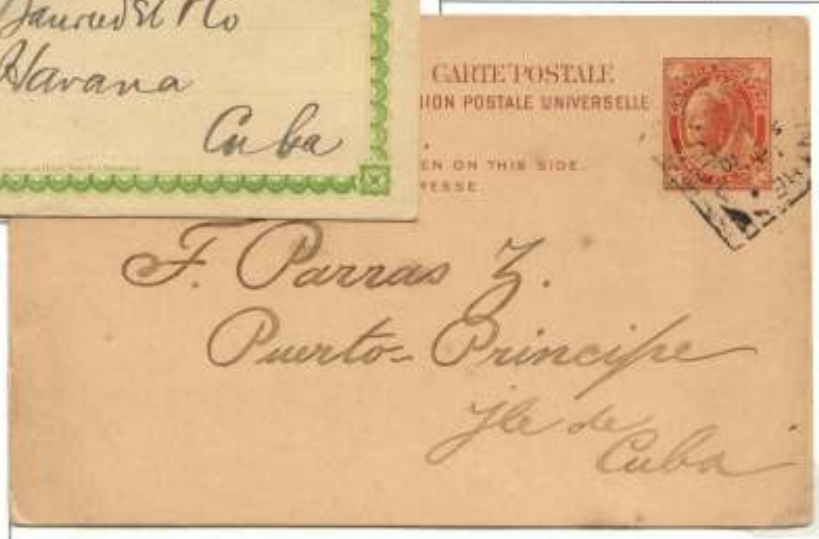 Havana
Cuba
CARTE POSTALE
ION POSTALE UNIVERSELLE
EN ON THIS SIDE.
RESSE.
F. Parras Z.
Puerto-Principe
Ile de
Cuba